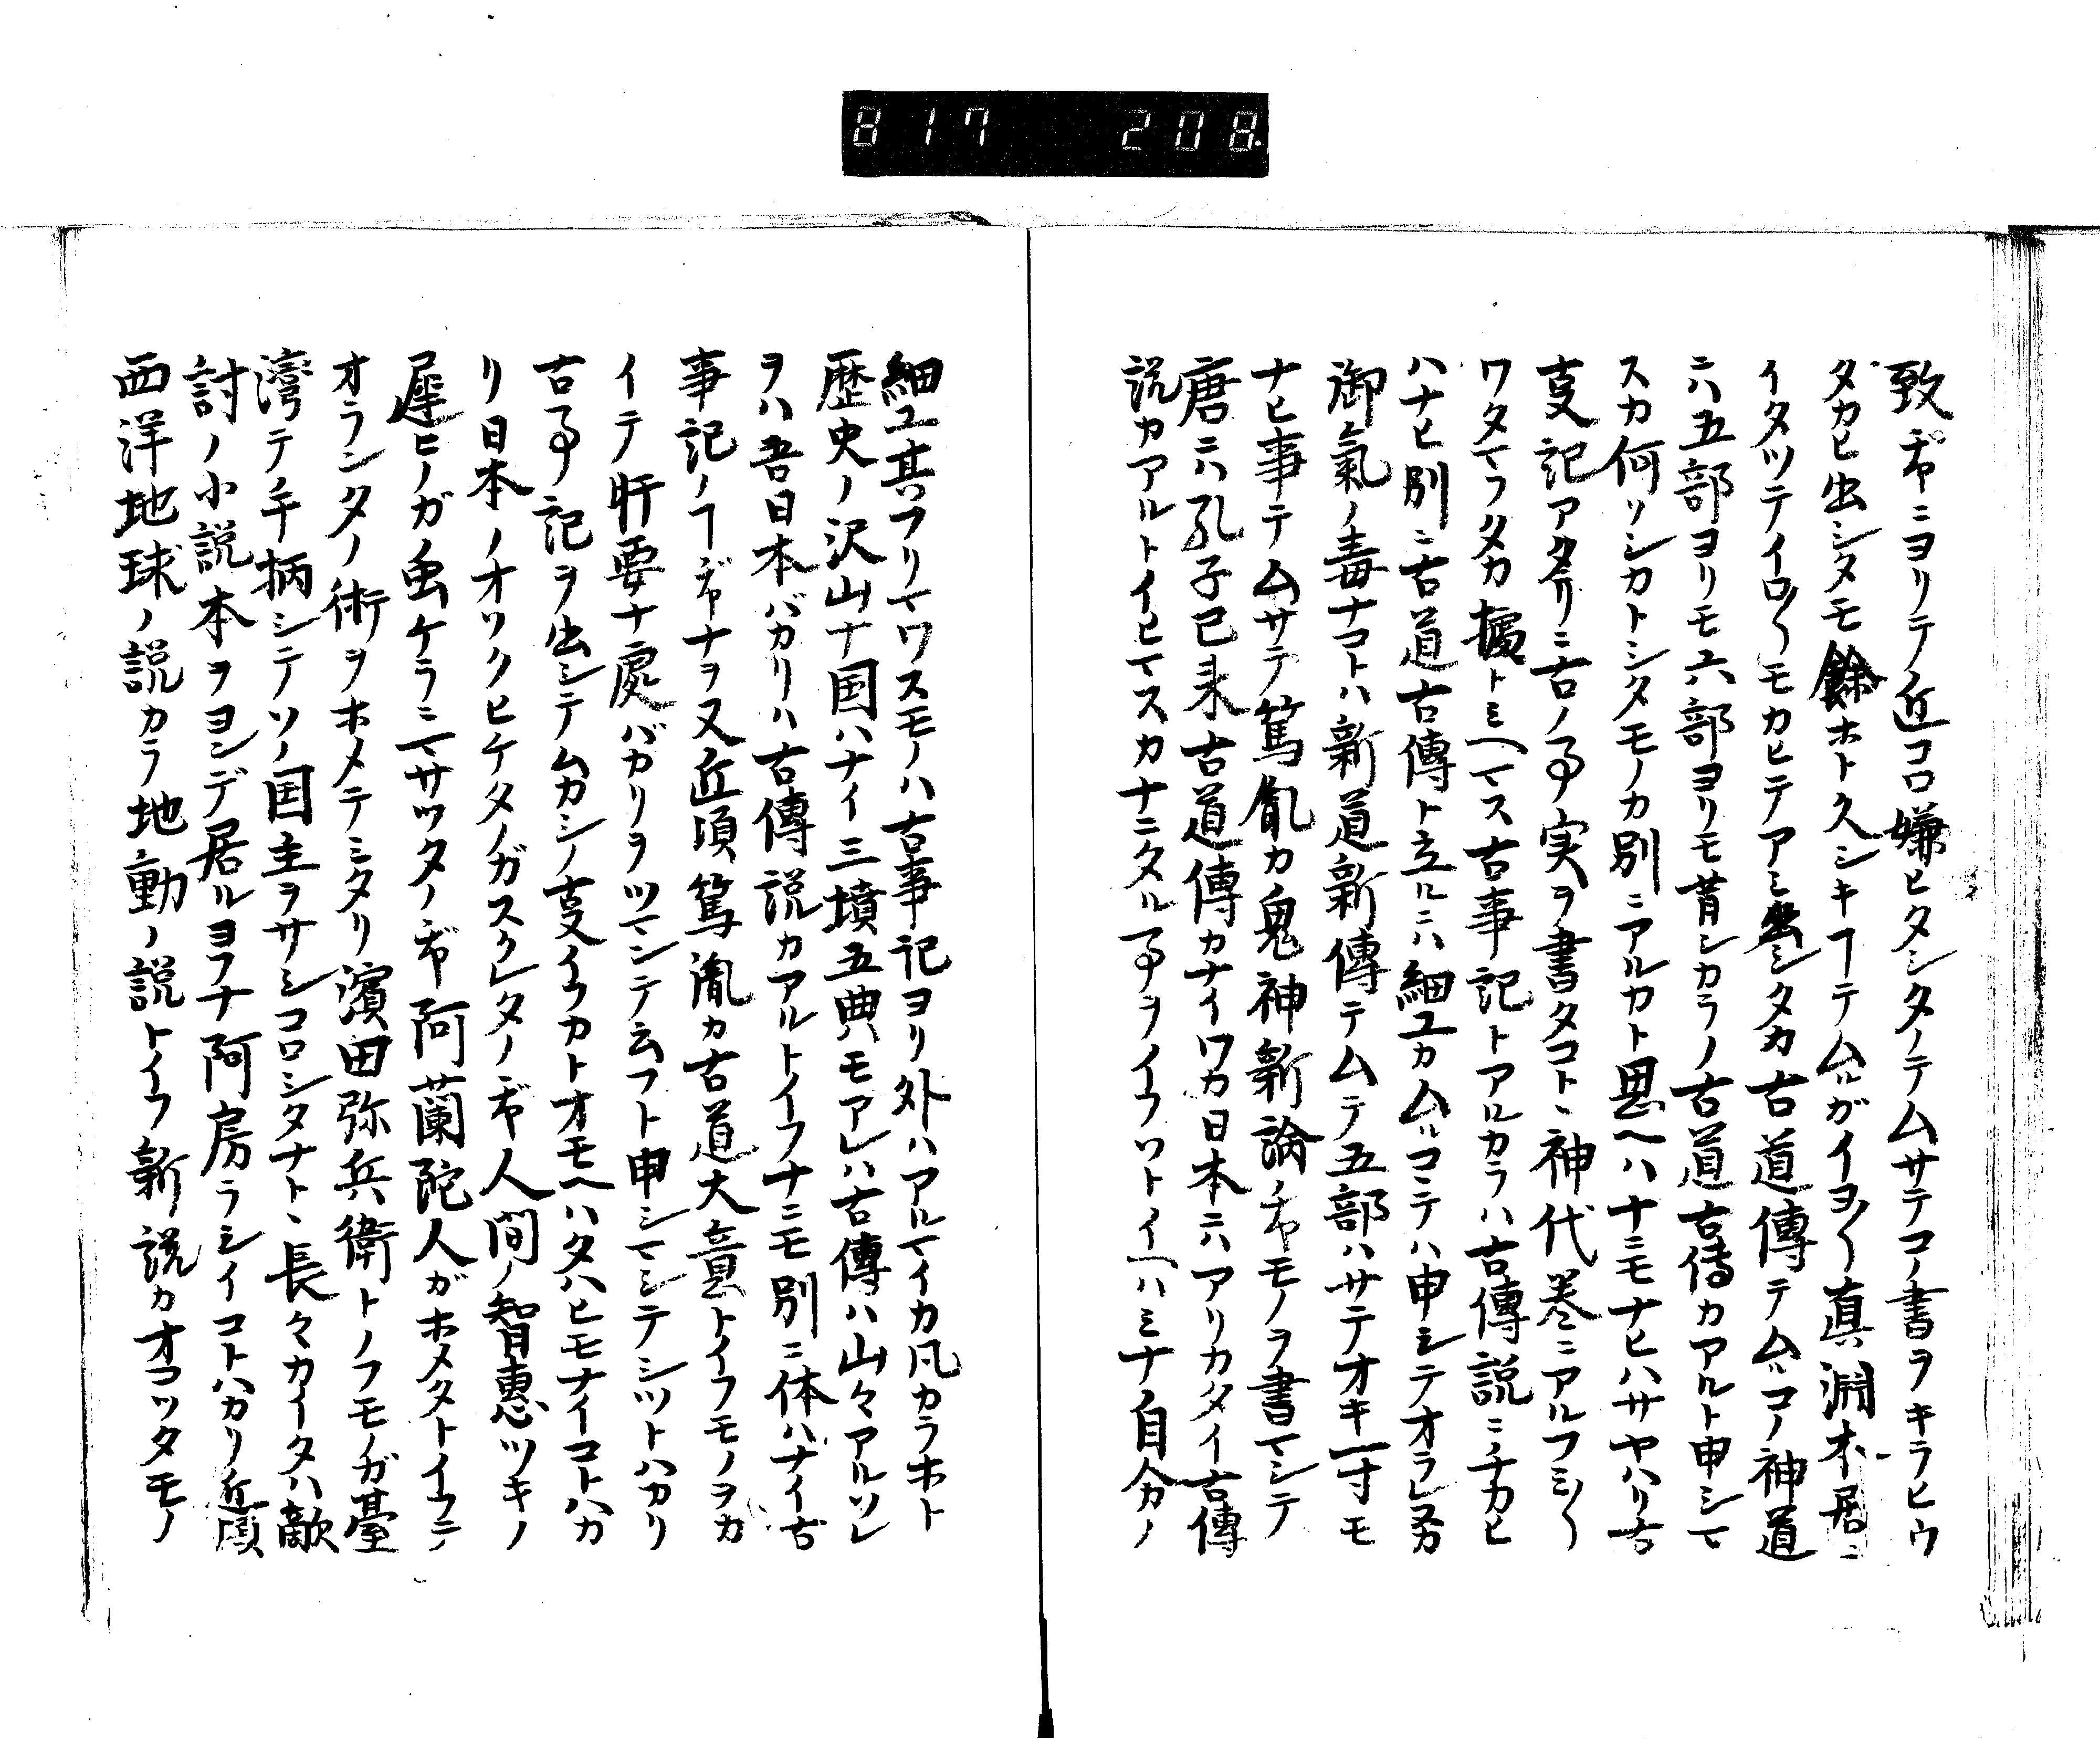 817 208
致ヂヤニヨリテノ近コロ嫌ヒタシタノテムサテコノ書ヲキラヒウ
タカヒ出シタモ餘ホト久シキヿテムルガイヨ〳〵真淵本居ニ
イタツテイロ〳〵モカヒテアミ出シタカ古道傳テムルコノ神道
ニハ五部ヨリモ六部ヨリモ昔シカラノ古道古傳カアルト申シマ
スカ何ソシカトシタモノカ別ニアルカト思ヘハ十ニモナヒハサヤハリ古
支記アタリニ古ノ事実ヲ書タコト、神代巻ニアルフミ〳〵
ワタマフタカ擄トミヘマス古事記トアルカラハ古傳説ニチカヒ
ハナヒ別ニ古道古傳ト立ルニハ細工カムルコテハ申シテオラレヌカ
御氣ノ毒ナコトハ新道新傳テムテ五部ハサテオキ一寸モ
ナヒ事テムサテ篤胤カ鬼神新論ノヂヤモノヲ書マシテ
唐ニハ孔子已来古道傳カナイワカ日本ニハアリカタイ古傳
説カアルトイヒマスカナニタル事ヲイフソトイヘハミナ自分ノ
細工其フリマワスモノハ古事記ヨリ外ハアルマイカ凡カラホト
歴史ノ沢山ナ国ハナイ三墳五典モアレハ古傳ハ山々アルソレ
ヲハ吾日本バカリハ古傳説カアルトイフナニモ別ニ体ハナイ古
事記ノヿヂヤナヲ又近項篤胤カ古道大意トイフモノヲカ
イテ肝要ナ處バカリヲツマンテ云フト申シマシテシツトハカリ
古事記ヲ出シテムカシノ支イフカトオモヘハタハヒモナイコトハカ
リ日本ノオソクヒケタノガスクレタノヂヤ人間ノ智惠ツキノ
遲ヒノガ虫ケラニマサツタノヂヤ阿蘭陀人ガホメタトイフテ
オランタノ術ヲホメテミタリ濱田弥兵衛トノフモノガ臺
湾テノ手柄シテソノ国主ヲサシコロシタナト、長々カイタハ敵
討ノ小説本ヲヨンデ居ルヨフナ阿房ラシイコトハカリ近項
西洋地球ノ説カラ地動ノ説トイフ新説カオコツタモノ